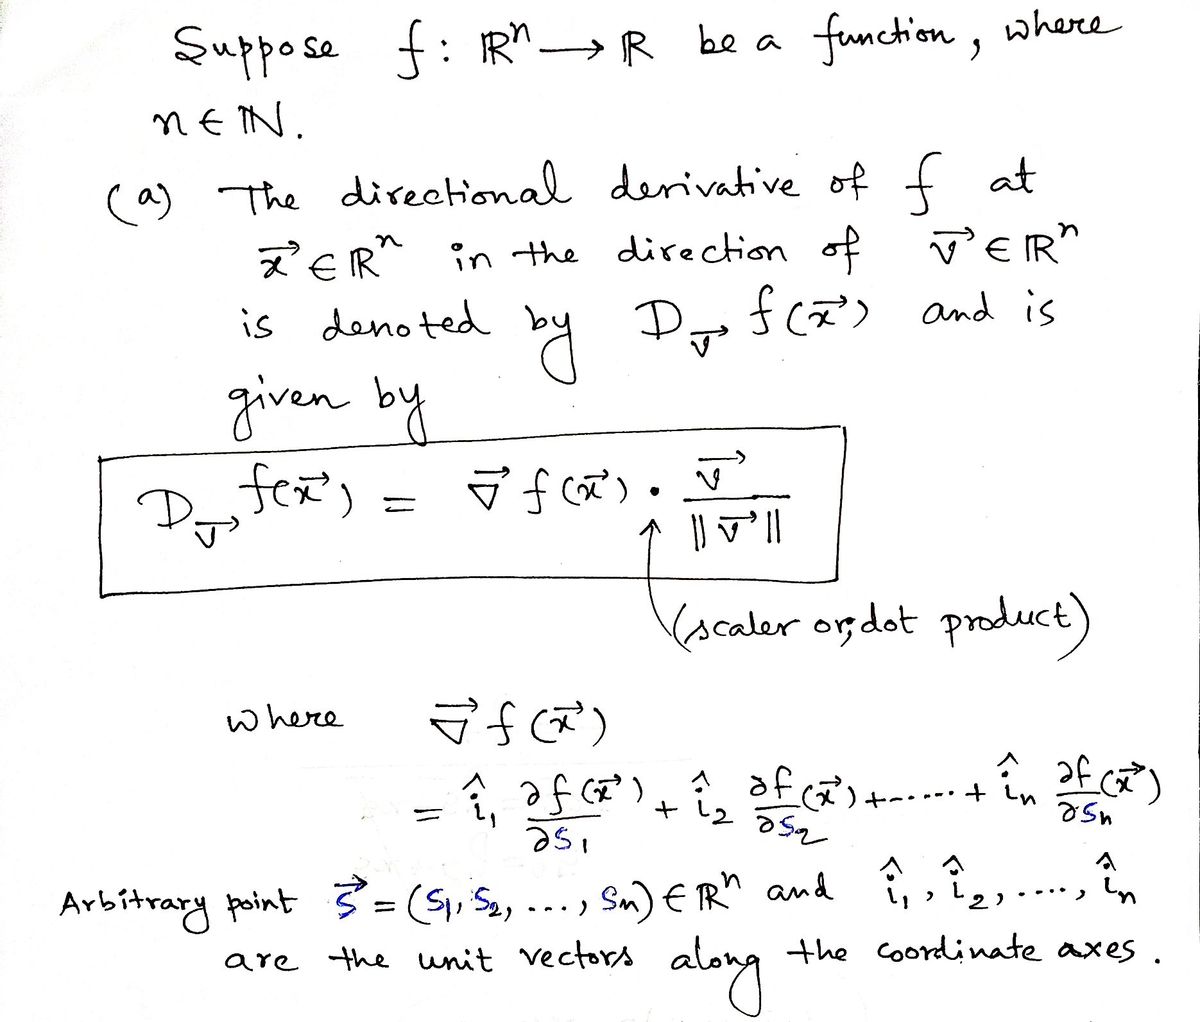 Suppose f: ℝⁿ → ℝ be a function, where
n ∈ ℕ.
(a) The directional derivative of f at
x⃗ ∈ ℝⁿ in the direction of v⃗ ∈ ℝⁿ
is denoted by D_v⃗ f(x⃗) and is
given by
D_v⃗ f(x⃗) = ∇⃗ f(x⃗) · v⃗ / ||v⃗||
(scaler or, dot product)
where ∇⃗ f(x⃗)
= î₁ ∂f(x⃗)/∂s₁ + î₂ ∂f(x⃗)/∂s₂ + ...... + îₙ ∂f(x⃗)/∂sₙ
Arbitrary point s⃗ = (s₁, s₂, ..., sₙ) ∈ ℝⁿ and î₁, î₂, ...., îₙ
are the unit vectors along the coordinate axes.